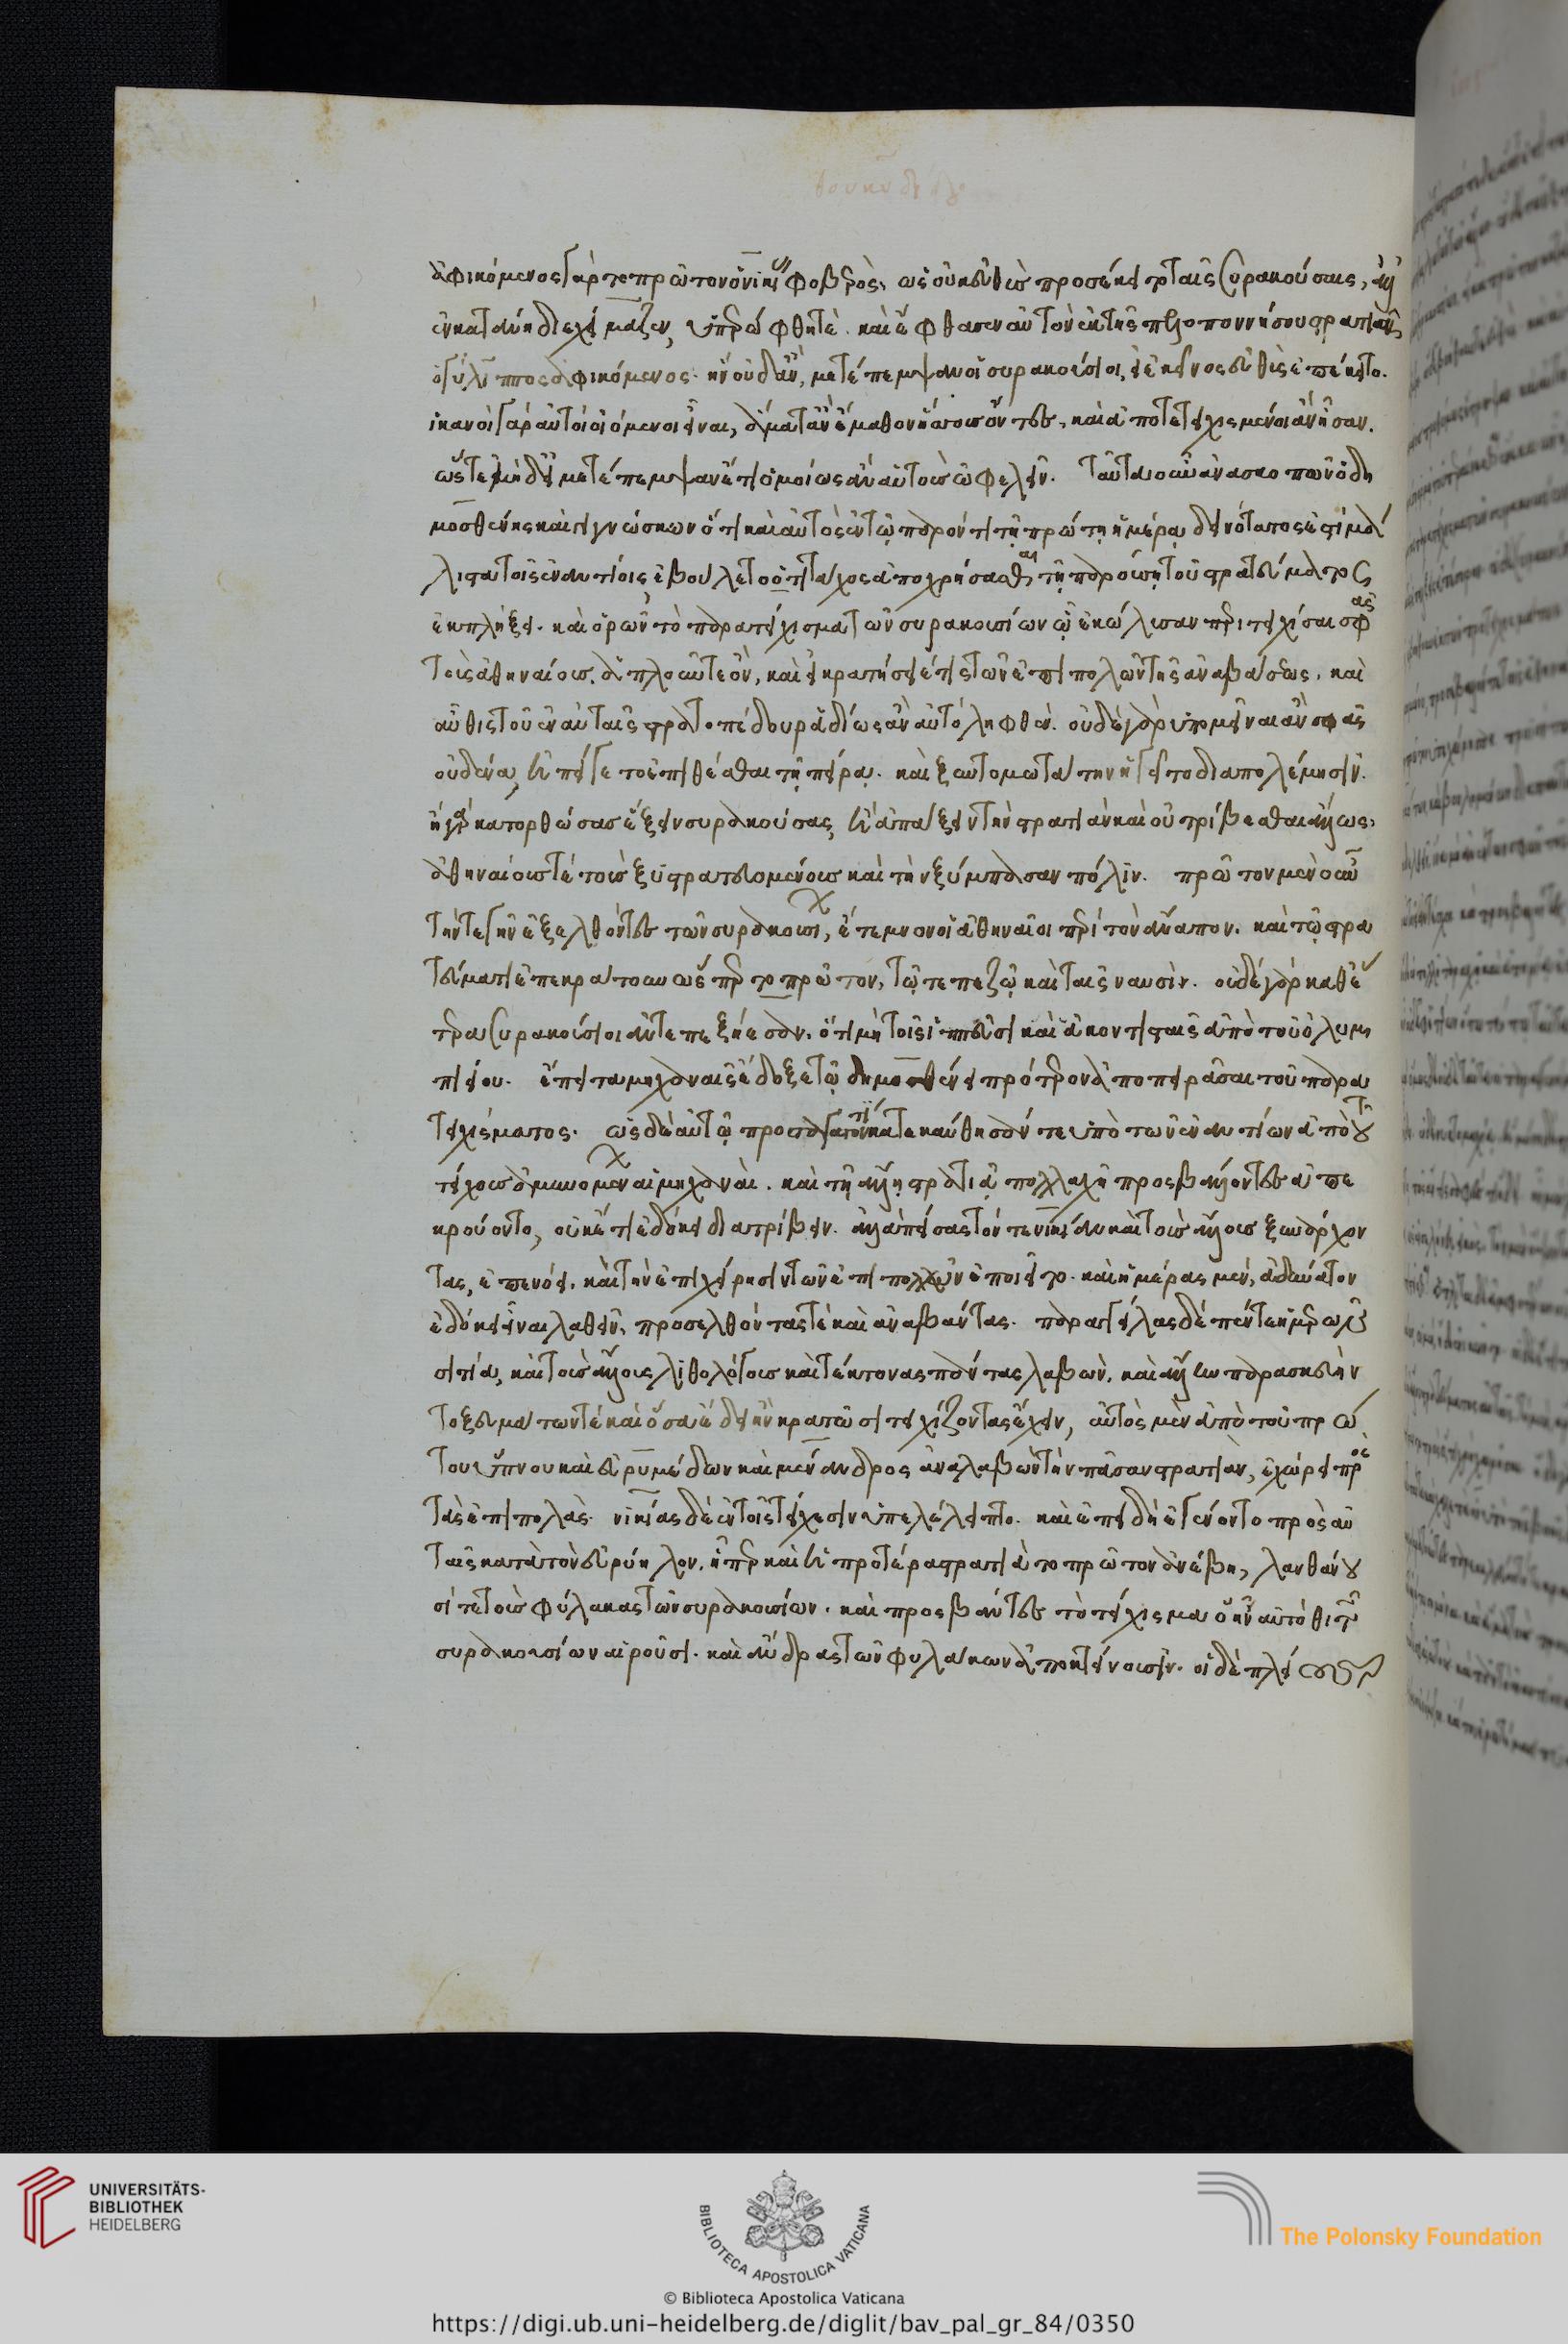 ἀφικόμενος γὰρ τὸ πρῶτον ὁ νικίας φοβερὸς, ὡς οὐκ εὐθὺς προσέκειτο ταῖς συρακούσαις, ἀλλ
ἐν κατάνῃ διεχείμαζεν, ὑπερώφθη τὲ. καὶ ἔφθασεν αὐτὸν ἐκ τῆς πελοποννήσου στρατιὰν
ὁ γύλιππος ἀφικόμενος. ἣν οὐδ ἂν, μετέπεμψαν οἱ συρακούσιοι, εἰ ἐκεῖνος εὐθὺς ἐπέκειτο.
ἱκανοὶ γὰρ αὐτοὶ οἰόμενοι εἶναι, ἅμα τ ἂν ἔμαθον ἥττους ὄντες, καὶ ἀποτετειχισμένοι ἂν ἦσαν.
ὥστε μὴδ εἰ μετέπεμψαν ἔτι ὁμοίως ἂν αὐτοὺς ὠφελεῖν. ταῦτα οὖν ἀνασκοπῶν ὁ δη
μοσθένης καὶ γιγνώσκων ὅτι καὶ αὐτὸς ἐν τῷ παρόντι τῇ πρώτῃ ἡμέρᾳ δεινότατος ἐστὶ μά
λιστα τοῖς ἐναντίοις, ἐβούλετο ὅτι τάχος ἀποχρήσασθαι τῇ παρούσῃ τοῦ στρατεύματος
ἐκπλήξει. καὶ ὁρῶν τὸ παρατείχισμα τῶν συρακουσίων ᾧ ἐκώλυσαν περιτειχίσαι σφας
τοὺς ἀθηναίους, ἁπλοῦν τε ὂν, καὶ εἰ κρατήσειέ τις τῶν ἐπιπολῶν τῆς ἀναβάσεως, καὶ
αὖθις τοῦ ἐν αὐταῖς στρατοπέδου ῥᾳδίως ἂν αὐτὸ ληφθέν. οὐδὲ γὰρ ὑπομεῖναι ἂν σφᾶς
οὐδένα, ἠπείγετο ἐπιθέσθαι τῇ πείρᾳ. καὶ ξυντομωτάτην ἡγεῖτο διαπολέμησιν.
ἢ γὰρ κατορθώσας ἕξειν συρακούσας, ἢ ἀπάξειν τὴν στρατιὰν καὶ οὐ τρίβεσθαι ἄλλως,
ἀθηναίους τέ τοὺς ξυστρατευομένους καὶ τὴν ξύμπασαν πόλιν. πρῶτον μὲν οὖν
τήν τε γῆν ἐξελθόντες τῶν συρακουσίων, ἔτεμνον οἱ ἀθηναῖοι περὶ τὸν ἄναπον. καὶ τῷ στρα
τεύματι ἐπεκράτουν ὥσπερ τὸ πρῶτον, τῷ τε πεζῷ καὶ ταῖς ναυσὶν. οὐδὲ γὰρ καθ ἕ
τερα συρακούσιοι ἀντεπεξῄεσαν. ὅτι μὴ τοῖς ἱππεῦσι καὶ ἀκοντισταῖς ἀπὸ τοῦ ὀλυμ
πιείου. ἔπειτα μηχαναῖς ἔδοξε τῷ δημοσθένει πρότερον ἀποπειρᾶσαι τοῦ παρα
τειχίσματος. ὡς δὲ αὐτῷ προσαγαγόντι κατεκαύθησάν τε ὑπὸ τῶν ἐναντίων ἀπὸ τοῦ
τείχους ἀμυνομένων αἱ μηχαναὶ. καὶ τῇ ἄλλῃ στρατιᾷ πολλαχῆ προσβάλλοντες ἀπε
κρούοντο, οὐκέτι ἐδόκει διατρίβειν. ἀλλὰ πείσας τόν τε νικίαν καὶ τοὺς ἄλλους ξυνάρχον
τας, ἐπενόει. καὶ τὴν ἐπιχείρησιν τῶν ἐπιπολῶν ἐποιεῖτο. καὶ ἡμέρας μὲν, ἀδύνατον
ἐδόκει εἶναι λαθεῖν, προσελθόντας τὲ καὶ ἀναβάντας. παραγγείλας δὲ πέντε ἡμερῶν
σιτία, καὶ τοὺς ἄλλους λιθολόγους καὶ τέκτονας πάντας λαβὼν. καὶ ἄλλην παρασκευὴν
τοξευμάτων τὲ καὶ ὅσα ἔδει ἢν κρατῶσι τειχίζοντας ἔχειν, αὐτὸς μὲν ἀπὸ τοῦ πρώ
του ὕπνου καὶ εὐρυμέδων καὶ μένανδρος ἀναλαβὼν τὴν πᾶσαν στρατιὰν, ἐχώρει πρὸς
τὰς ἐπιπολὰς. νικίας δὲ ἐν τοῖς τείχεσιν ὑπελέλειπτο. καὶ ἐπειδὴ ἐγένοντο πρὸς αὐ
ταῖς κατὰ τὸν εὐρύηλον. ᾗπερ καὶ ἡ προτέρα στρατιὰ τὸ πρῶτον ἀνέβη, λανθάνου
σί τε τοὺς φύλακας τῶν συρακουσίων. καὶ προσβάντες τὸ τείχισμα ὃ ἦν αὐτόθι τῶν
συρακουσίων αἱροῦσι. καὶ ἄνδρας τῶν φυλάκων ἀποκτείνουσιν. οἱ δὲ πλείους
UNIVERSITÄTS-
BIBLIOTHEK
HEIDELBERG
BIBLIOTECA APOSTOLICA VATICANA
The Polonsky Foundation
© Biblioteca Apostolica Vaticana
https://digi.ub.uni-heidelberg.de/diglit/bav_pal_gr_84/0350